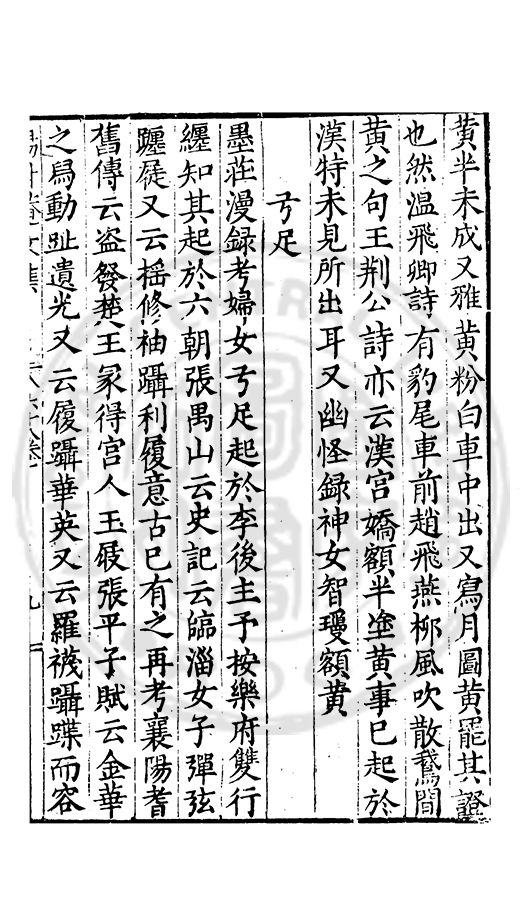 黄半未成又雅黄粉白車中出又寫月圖黄罷其證
也然温飛卿詩有豹尾車前趙飛燕栁風吹散蛾間
黄之句王荆公詩亦云漢宫嬌額半塗黄事已起於
漢特未見所出耳又幽怪録神女智瓊額黄
弓足
墨莊漫録考婦女弓足起於李後主予按樂府雙行
纒知其起於六朝張禺山云史記云臨淄女子彈弦
躧屣又云揺修袖躡利履意古已有之再考襄陽耆
舊傳云盗發楚王冢得宫人玉屐張平子賦云金華
之舄動趾遺光又云履躡華英又云羅襪躡蹀而容